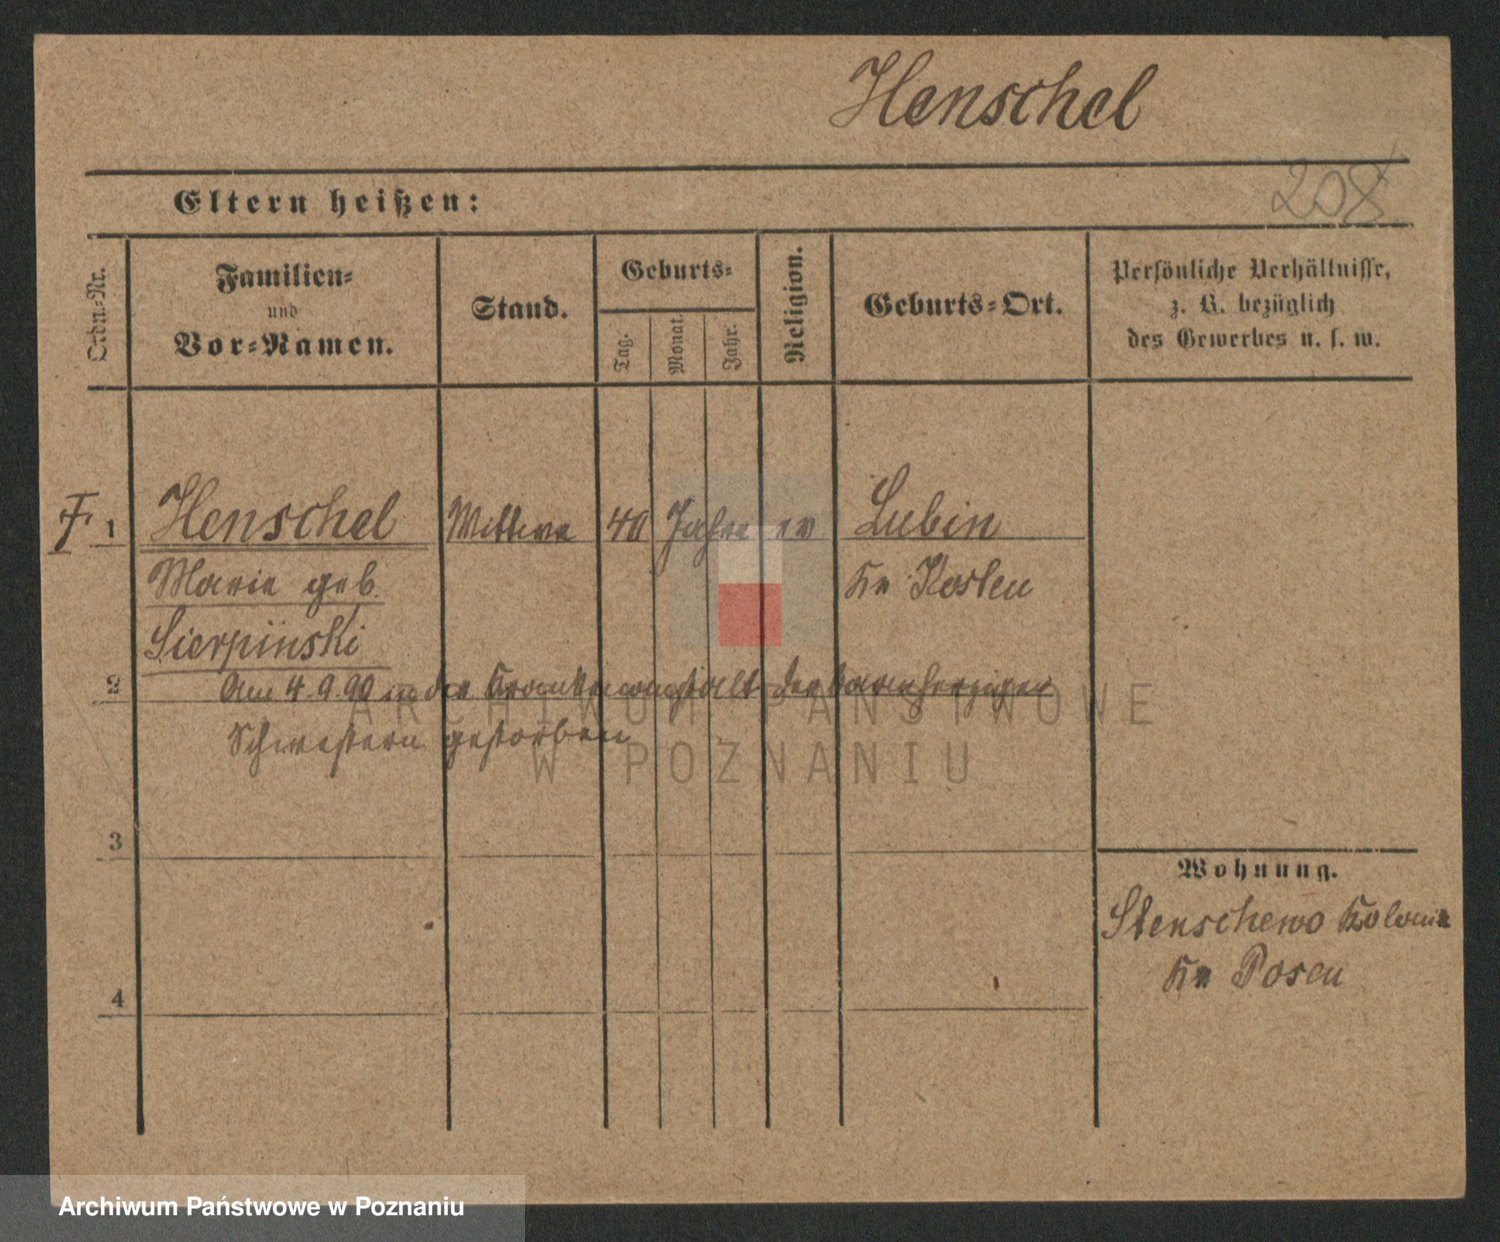 Henschel
208
Eltern heißen:
Ordn.-Nr.
Familien-
und
Vor-Namen.
Stand.
Geburts-
Tag.
Monat.
Jahr.
Religion.
Geburts-Ort.
Persönliche Verhältnisse,
z. B. bezüglich
des Gewerbes u. s. w.
1 Henschel Wittwe 40 Jahre ev Lubin
Marie geb. Kr Kosten
Sierpinski
2 Am 4.9.90 in der Krankenanstalt der barmherzigen
Schwestern gestorben
ARCHIWUM PAŃSTWOWE
W POZNANIU
3
Wohnung.
Stenschewo Kolonie
Kr Posen
4
Archiwum Państwowe w Poznaniu